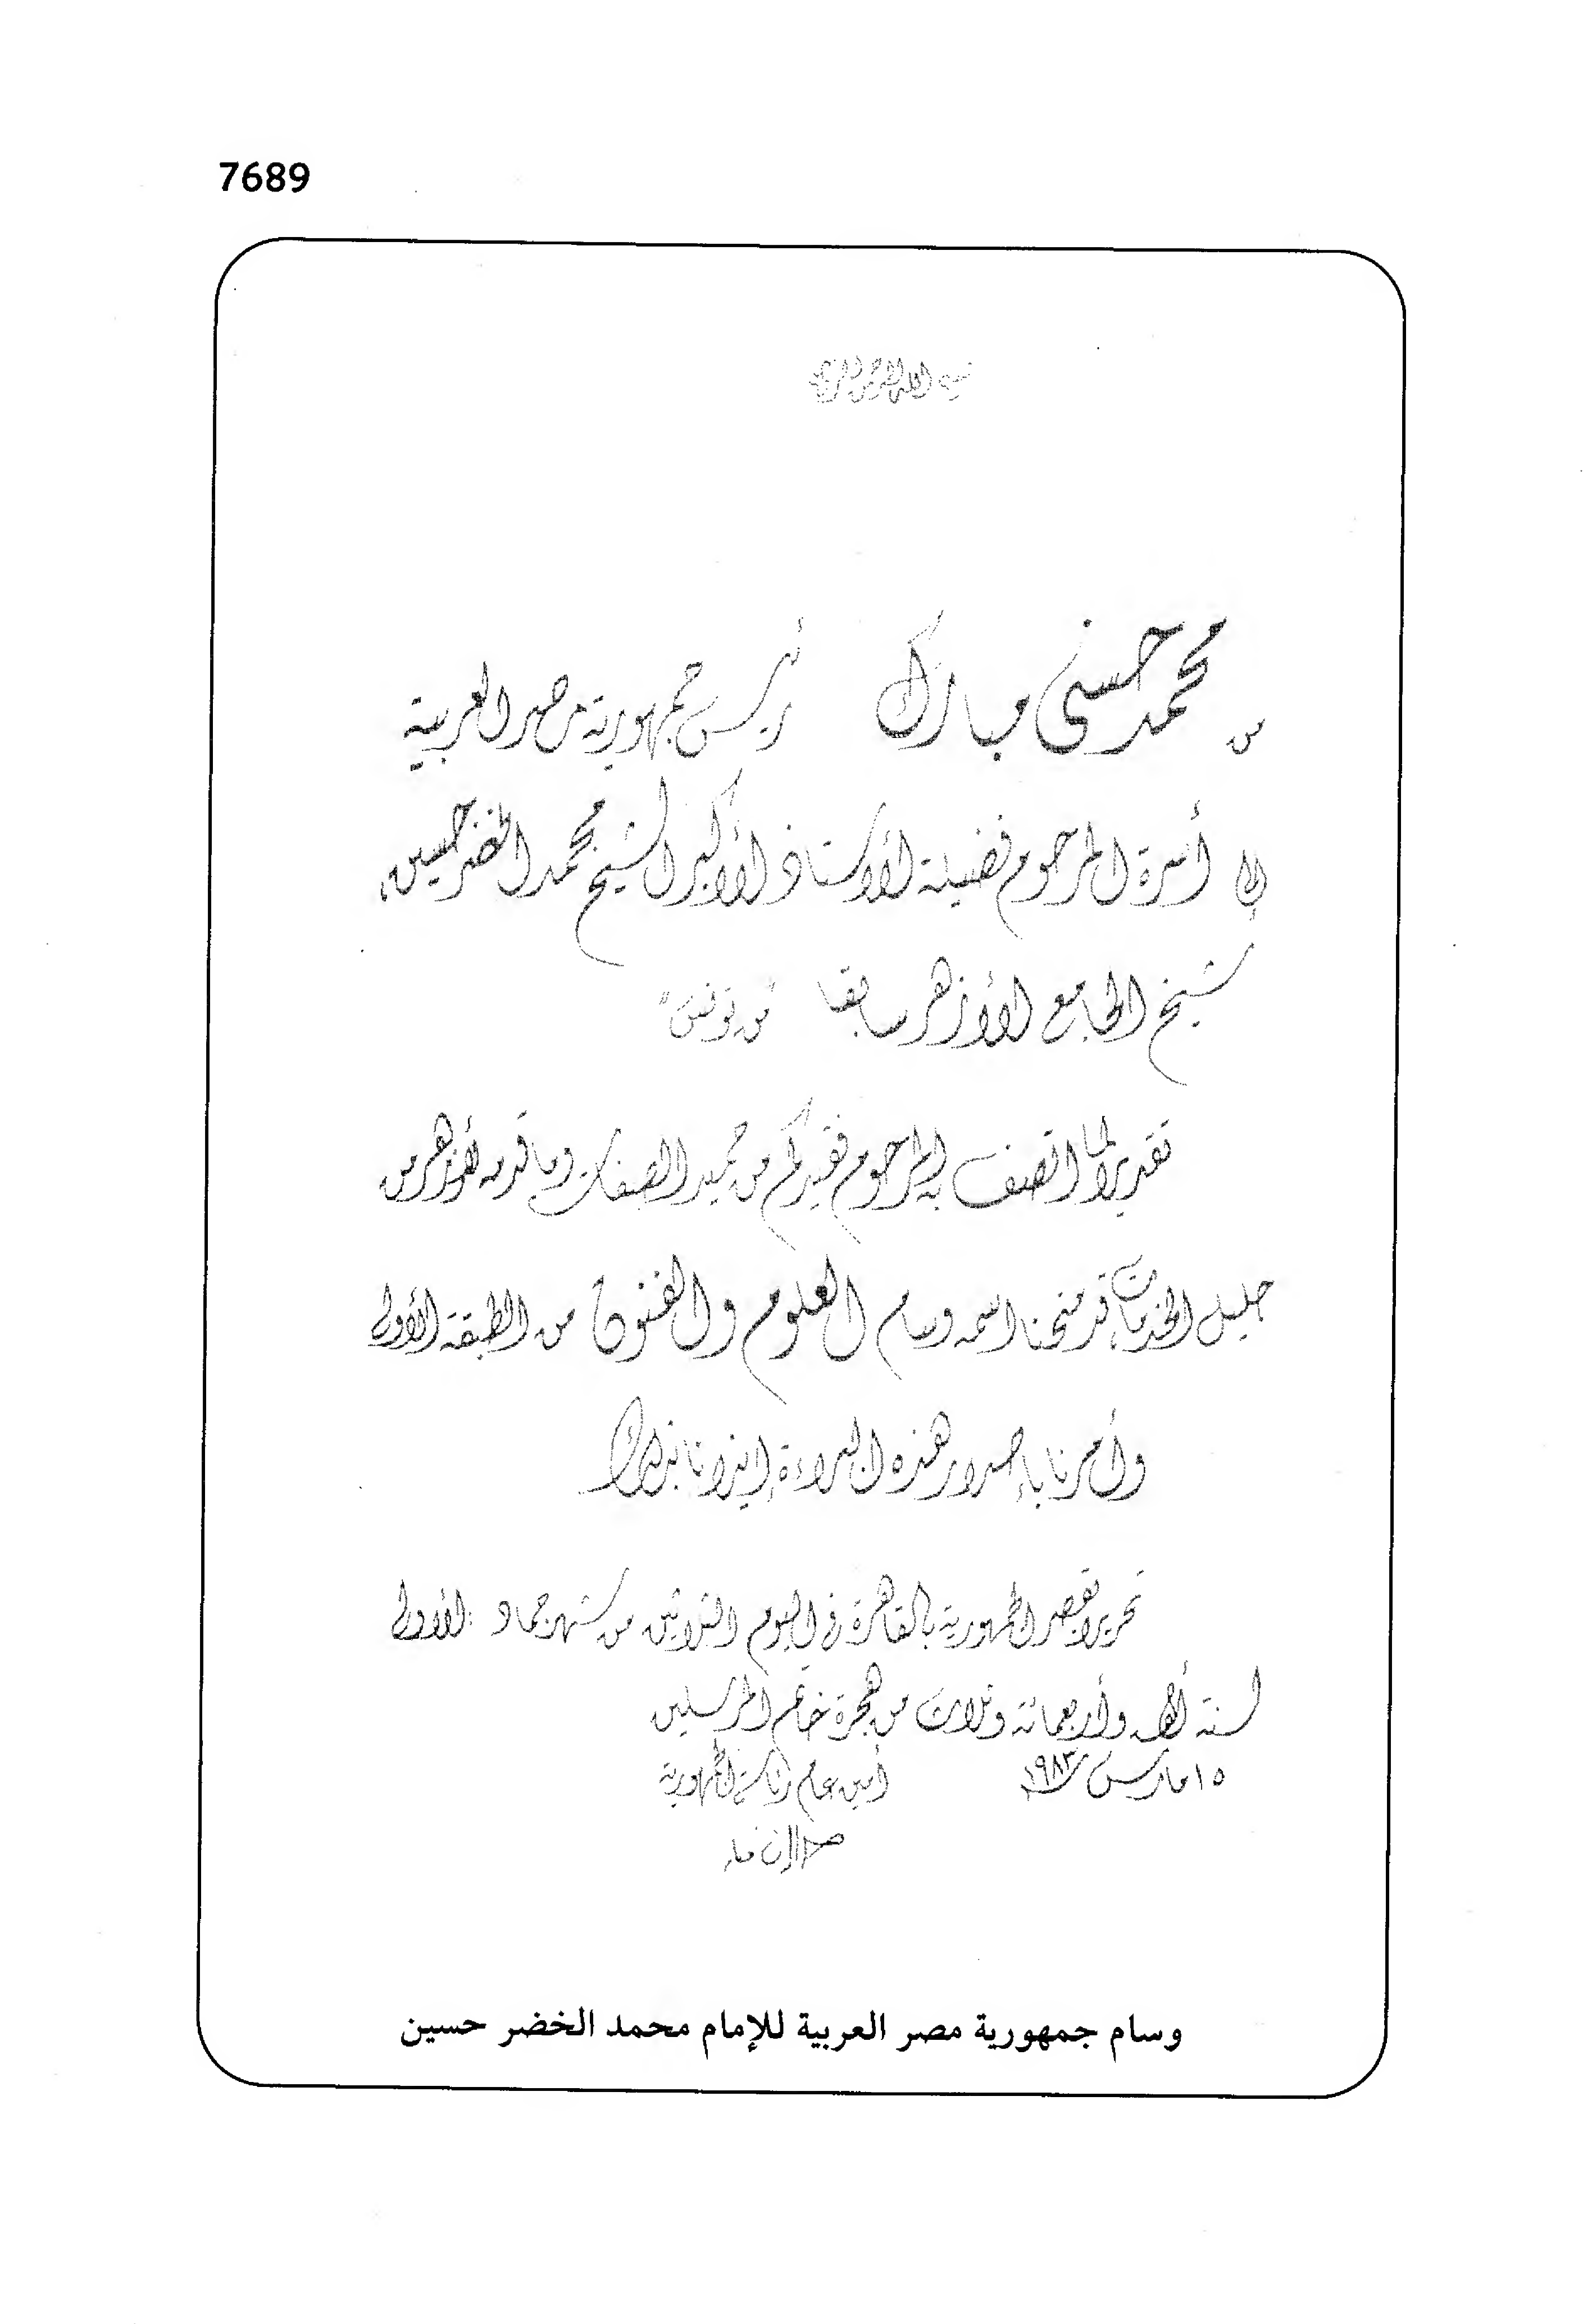 7689
بسم الله الرحمن الرحيم
من محمد حسني مبارك رئيس جمهورية مصر العربية
إلى أسرة المرحوم فضيلة الأستاذ الأكبر الشيخ محمد الخضر حسين،
شيخ الجامع الأزهر سابقا "من تونس"
تقديرا لما اتصف به المرحوم فقيدكم من حميد الصفات وما قدمه للأزهر من
جليل الخدمات، قد منحنا اسمه وسام العلوم والفنون من الطبقة الأولى
وأمرنا بإصدار هذه البراءة إيذانا بذلك
تحريرا بقصر الجمهورية بالقاهرة في اليوم الثلاثين من شهر جماد الأولى
لسنة ألف وأربعمائة وثلاث من هجرة خاتم المرسلين
١٥ مارس سنة ١٩٨٣ أمين عام رئاسة الجمهورية
وسام جمهورية مصر العربية للإمام محمد الخضر حسين